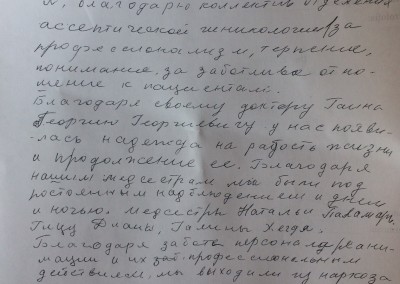 благодарю коллектив отделения
ассептической гинекологии за
профессионализм, терпение,
понимание, за заботливое отно-
шение к пациентам.
Благодаря своему доктору Гаина
Георгий Георгиевичу у нас появи-
лась надежда на радость жизни
и продолжение ее. Благодаря
нашим медсестрам мы были под
постоянным наблюдением и днем
и ночью. Медсестры Натальи
Дианы, Галины
Благодаря заботе персонала реани-
мации и их профессиональным
действиям, мы выходили из наркоза